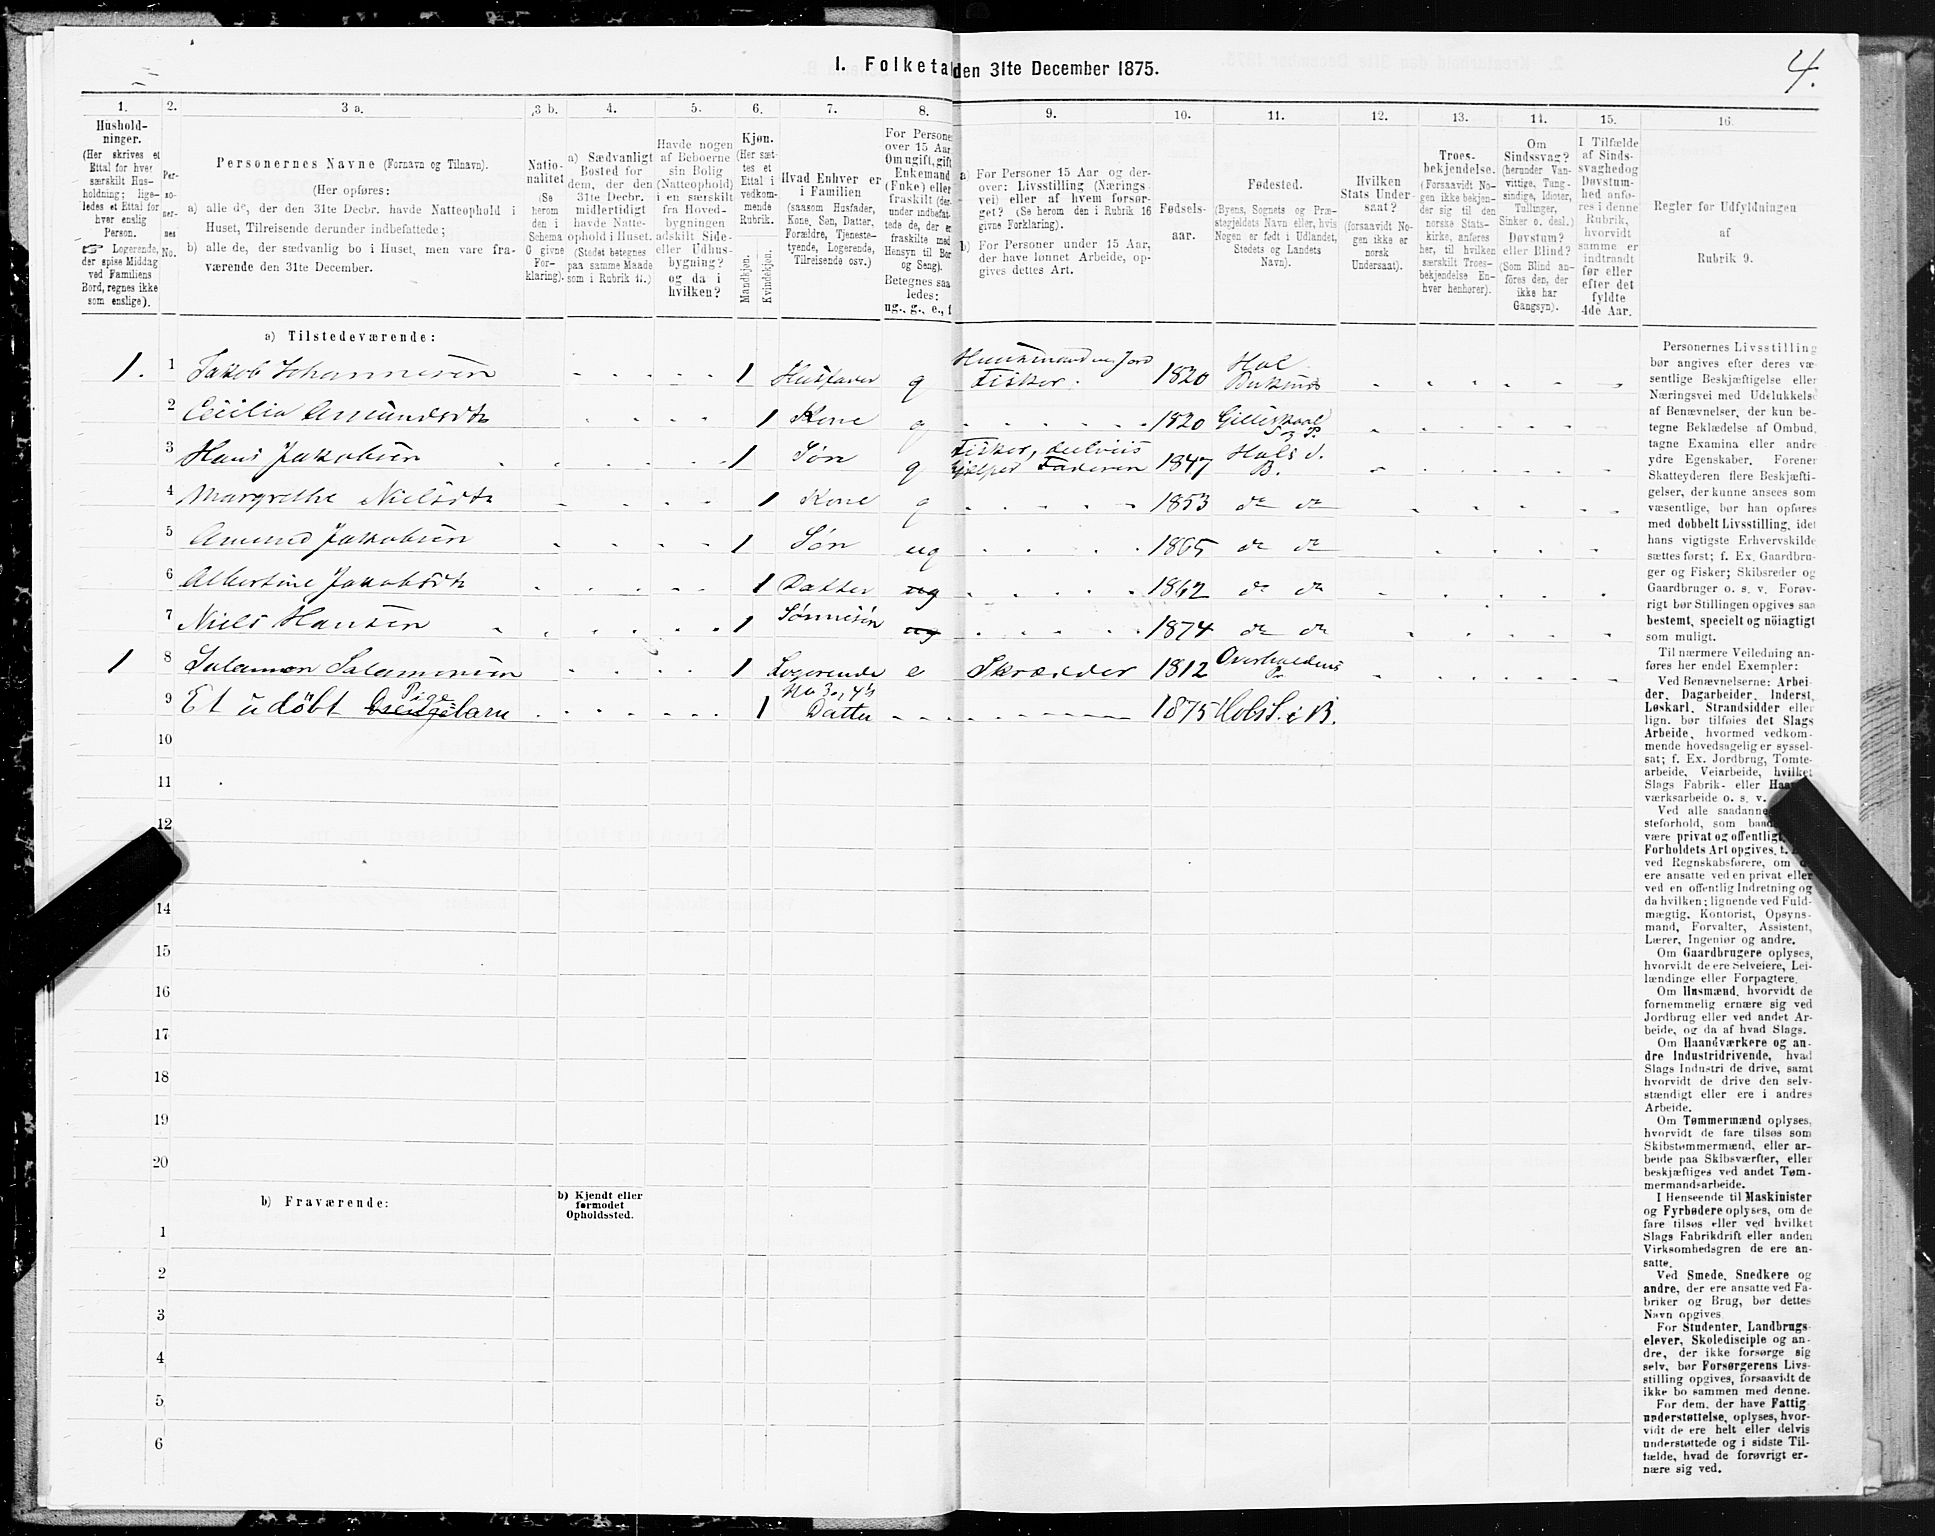 I. Folketal den 31te December 1875.
4.
1. 2. 3 a. 3 b. 4. 5. 6. 7. 8. 9. 10. 11. 12. 13. 14. 15. 16.
Hushold-
ninger.
(Her skrives et
Ettal for hver
særskilt Hus-
holdning; lige-
ledes et Ettal for
hver enslig
Person.
☞ Logerende,
der spise Middag
ved Familiens
Bord, regnes ikke
som enslige).
Per-
so-
ner-
nes
No.
Personernes Navne (Fornavn og Tilnavn).
(Her opføres:
a) alle de, der den 31te Decbr. havde Natteophold i
Huset, Tilreisende derunder indbefattede;
b) alle de, der sædvanlig bo i Huset, men vare fra-
værende den 31te December.
Natio-
nalitet
(Se
herom
den i
Schema
O givne
For-
klaring).
a) Sædvanligt
Bosted for
dem, der den
31te Decbr.
midlertidigt
havde Natte-
ophold i Huset.
(Stedet betegnes
paa samme Maade
som i Rubrik 11.)
Havde nogen
af Beboerne
sin Bolig
(Natteophold)
i en særskilt
fra Hoved-
bygningen
adskilt Side-
eller Udhus-
bygning?
og da i
hvilken?
Kjøn.
(Her sæt-
tes et
Ettal i
vedkom-
mende
Rubrik.
Mandkjøn.
Kvindekjøn.
Hvad Enhver er
i Familien
(saasom Husfader,
Kone, Søn, Datter,
Forældre, Tjeneste-
tyende, Logerende,
Tilreisende osv.)
For Persone
over 15 Aar
Om ugift, gift
Enkemand
(Enke) eller
fraskilt (der-
under indbefat-
tede de, der er
fraskilte med
Hensyn til Bor
og Seng).
Betegnes saa
ledes:
ug., g., e., f
a) For Personer 15 Aar og der-
over: Livsstilling (Nærings-
vei) eller af hvem forsør-
get? (Se herom den i Rubrik 16
givne Forklaring).
b) For Personer under 15 Aar,
der have lønnet Arbeide, op-
gives dettes Art.
Fødsels-
aar.
Fødested.
(Byens, Sognets og Præ-
stegjeldets Navn eller, hvis
Nogen er født i Udlandet,
Stedets og Landets
Navn).
Hvilken
Stats Under-
saat?
(forsaavidt No-
gen ikke er
norsk
Undersaat).
Troes-
bekjendelse.
(Forsaavidt No-
gen ikke bekjen-
der sig til den
norske Stats-
kirke, anføres
her, til hvilken
særskilt Troes-
bekjendelse En-
hver henhører).
Om
Sindssvag?
(herunder Van-
vittige, Tung-
sindige, Idioter,
Tullinger,
Sinker o. desl.)
Døvstum?
eller Blind?
(Som Blind an-
føres den, der
ikke har
Gangsyn).
I Tilfælde
af Sinds-
svaghed og
Døvstum-
hed anfø-
res i denne
Rubrik,
hvorvidt
samme er
indtraadt
før eller
efter det
fyldte
4de Aar.
Regler for Udfyldningen
af
Rubrik 9.
a) Tilstedeværende:
1. 1 Jakob Johannesen 1 Husfader g Fisker. 1820 Hol Buksnes
2 Cecilia Amundsdtr 1 Kone g 1820 Gilleskaal S & P.
3 Hans Jakobsen 1 Søn g Fisker, delviis hjelper Faderen 1847 Hols S. B.
4 Margrethe Nielsdtr 1 Kone g 1853 do do
5 Amund Jakobsen 1 Søn ug 1865 do do
6 Albertine Jakobsdtr 1 Datter ug 1862 do do
7 Niels Hansen 1 Sønnesøn ug 1874 do do
1 8 Salamon Salamonsen 1 Logerende e Skrædder 1812 Overhaldens P.
9 Et udøbt Pigebarn 1 No 3 & 4's Datter 1875 Hols S. i B.
10
11
12
14
15
16
17
18
19
20
b) Fraværende:
b) Kjendt eller
formodet
Opholdssted.
1
2
3
4
5
6
Personernes Livsstilling
bør angives efter deres væ
sentlige Beskjæftigelse eller
Næringsvei med Udelukkelse
af Benævnelser, der kun be-
tegne Beklædelse af Ombud,
tagne Examina eller andre
ydre Egenskaber. Forener
Skatteyderen flere Beskjæfti-
gelser, der kunne ansees som
væsentlige, bør han opføres
med dobbelt Livsstilling, idet
hans vigtigste Erhvervskilde
sættes først; f. Ex. Gaardbru-
ger og Fisker; Skibsreder og
Gaardbruger o. s. v. Forøv-
rigt bør Stillingen opgives saa
bestemt, specielt og nöiagtigt
som muligt.
Til nærmere Veiledning an-
føres her endel Exempler:
Ved Benævnelserne: Arbei-
der, Dagarbeider, Inderst,
Løskarl, Strandsidder eller
lign. bør tilføies det Slags
Arbeide, hvormed vedkom-
mende hovedsagelig er syssel-
sat; f. Ex. Jordbrug, Tomte-
arbeide, Veiarbeide, hvilket
Slags Fabrik- eller Haand-
værksarbeide o. s. v.
Ved alle saadanne
steforhold, som baade
være privat og offentligt,
Forholdets Art opgives, t.
ved Regnskabsførere, om
ere ansatte ved en privat eller
ved en offentlig Indretning og
da hvilken; lignende ved Fuld-
mægtig, Kontorist, Opsyns-
mand, Forvalter, Assistent,
Lærer, Ingeniør og andre.
Om Gaardbrugere oplyses,
hvorvidt de ere Selveiere, Lei-
lændinge eller Forpagtere.
Om Husmænd, hvorvidt de
fornemmelig ernære sig ved
Jordbrug eller ved andet Ar-
beide, og da af hvad Slags.
Om Haandværkere og an-
dre Industridrivende, hvad
Slags Industri de drive, samt
hvorvidt de drive den selv-
stændigt eller ere i andres
Arbeide.
Om Tømmermænd oplyses,
hvorvidt de fare tilsøs som
Skibstømmermænd, eller ar-
beide paa Skibsværfter, eller
beskjæftiges ved andet Tøm-
mermandsarbeide.
I Henseende til Maskinister
og Fyrbødere oplyses, om de
fare tilsøs eller ved hvilket
Slags Fabrikdrift eller anden
Virksomhedsgren de ere an-
satte.
Ved Smede, Snedkere og
andre, der ere ansatte ved Fa-
briker og Brug, bør dettes
Navn opgives
For Studenter, Landbrugs-
elever, Skoledisciple og an-
dre, der ikke forsørge sig
selv, bør Forsørgerens Livs-
stilling opgives, forsaavidt de
ikke bo sammen med denne.
For dem, der have Fattig-
understøttelse, oplyses, hvor-
vidt de ere helt eller delvis
understøttede og i sidste Til-
fælde, hvad de forøvrigt er-
nære sig ved.